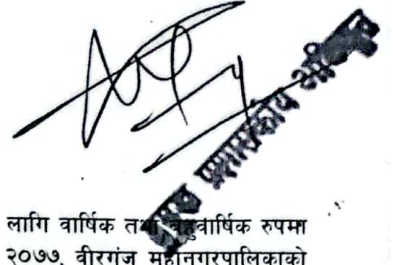 प्रमुख प्रशासकीय अधिकृत
लागि वार्षिक तथा बहुवार्षिक रुपमा
२०७७, वीरगंज महानगरपालिकाको